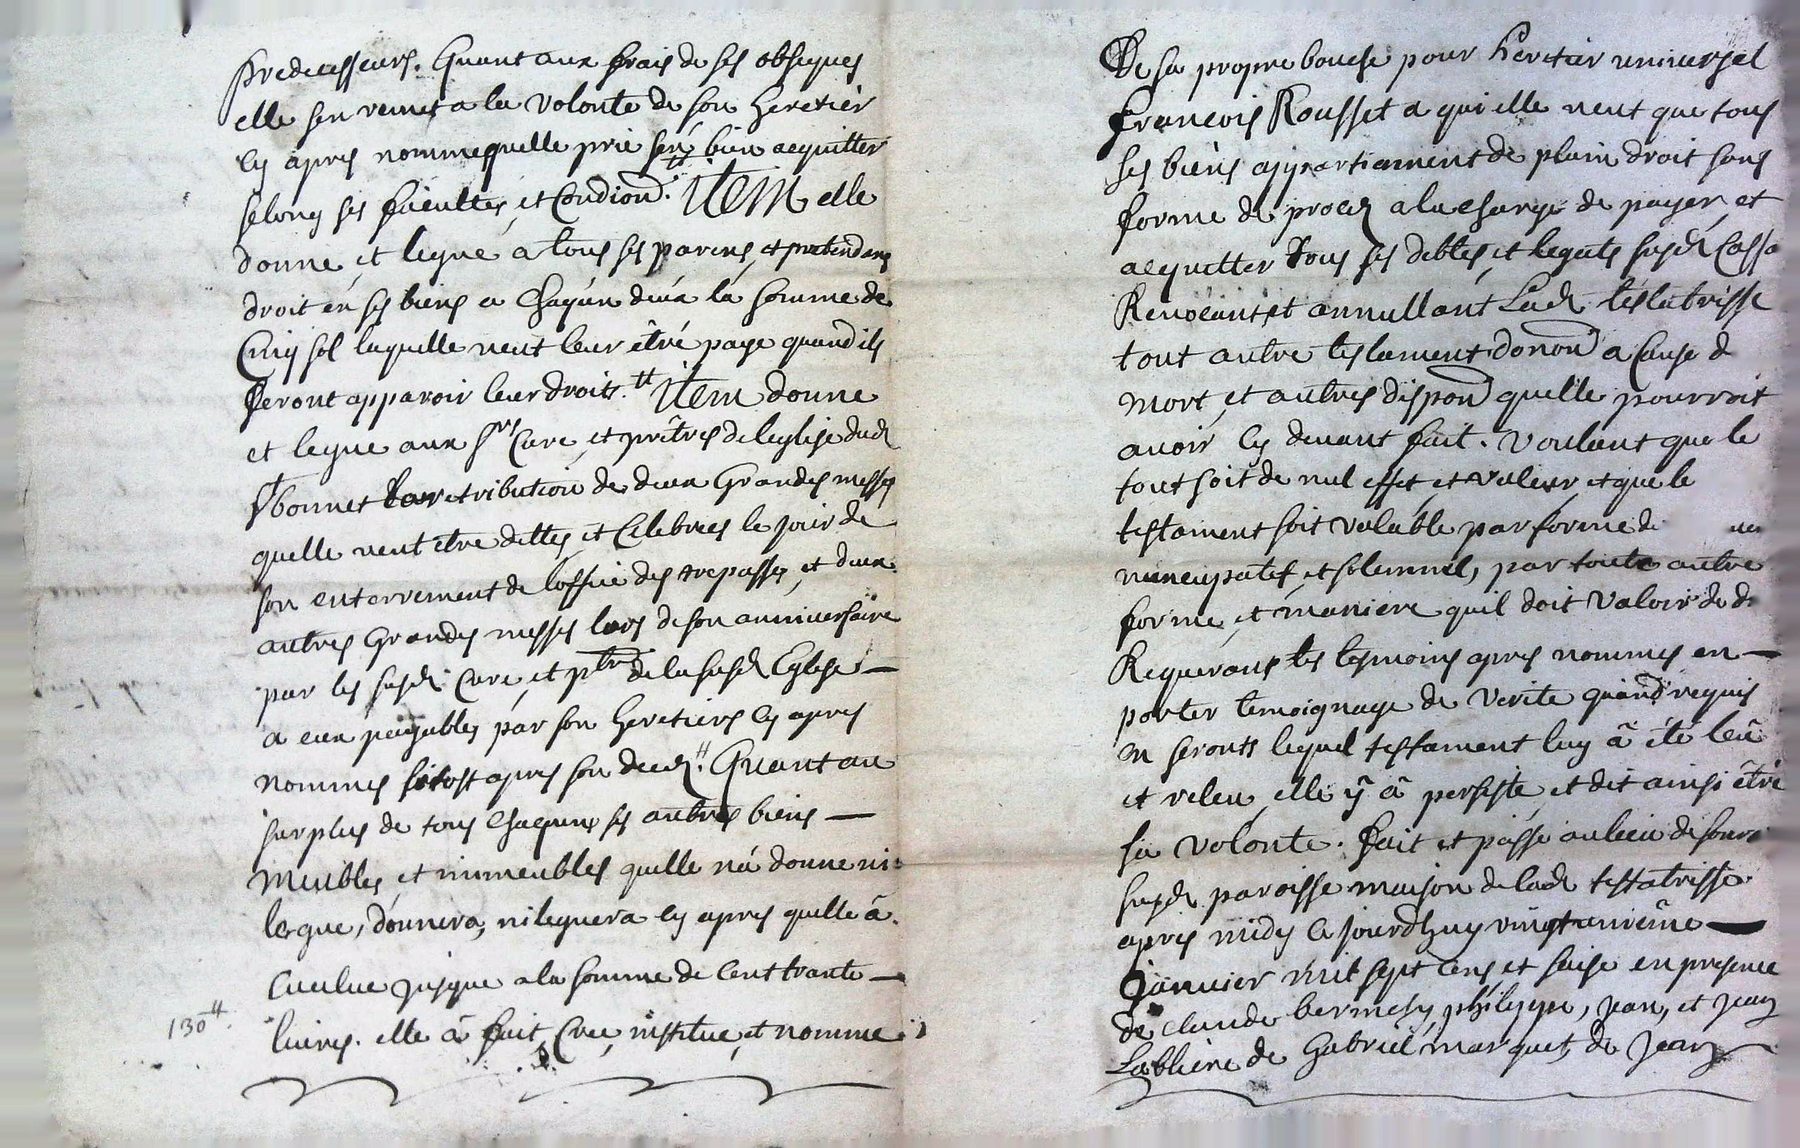 predecesseurs. Quant aux frais de ses obseques
elle sen remet a la volonte de son heretier
cy apres nomme quelle prie sen bien acquitter
selong ses facultes, et Condiond. ITEM elle
donne, et legue, a tous ses parens, et pretendans
droit en ses biens a Chaqun deux la somme de
Cinq sol laquelle veut leur être paye quand ils
feront apparoir leur droits. Item donne
et legue aux srs Cure, et prêtres de leglise dud
st bonnet la retribution de deux Grandes messes
quelle veut etre dittes, et Celebrees le jour de
son enterrement de loffice des trepasses, et deux
autres Grandes messes lors de son anniversaire
par les susd. Cure, et ptres de la susd Eglise —
a eux payables, par son heretiers cy apres
nommes sitost apres son deced. Quant au
surplus de tous Chaquns ses autres biens —
Meubles, et immeubles quelle na donne ni
legue, donnera, ni leguera cy apres quelle â
Cuelue jusque a la somme de Cent trante —
130tt.
livres. elle â fait, Cree, institue, et nomme
De sa propre bouche pour heretier universel
francois Rousset a qui elle veut que tous
ses biens appartiennent de plain droit sans
forme de proces a la charge de payer, et
acquitter tous ses debtes, et legats susd Cassa
Revocant, et annullant Lad. testatrisse
tout autre testament donaon a Cause d
mort, et autres dispon quelle pourroit
avoir cy devant fait. Voulant que le
tout soit de nul effet, et valeur, et que le
testament soit valable par forme de
nuncupatif et solemnel, par toute autre
forme, et maniere quil doit valoir de d
Requerant les tesmoins apres nommes en —
porter temoignage de verite quand requis
en seronts lequel testament luy â été leû
et releu, elle ÿ â persiste, et dit ainsi être
sa volonte. fait et passe au lieu de
susd paroisse maison de lad testatrisse
apres midy ce jourdhuy vingtunième —
janvier mil sept cens et seise en presence
de claude bermesy, philippe, jean, et jean
Labliere de Gabriel marquet, de jean